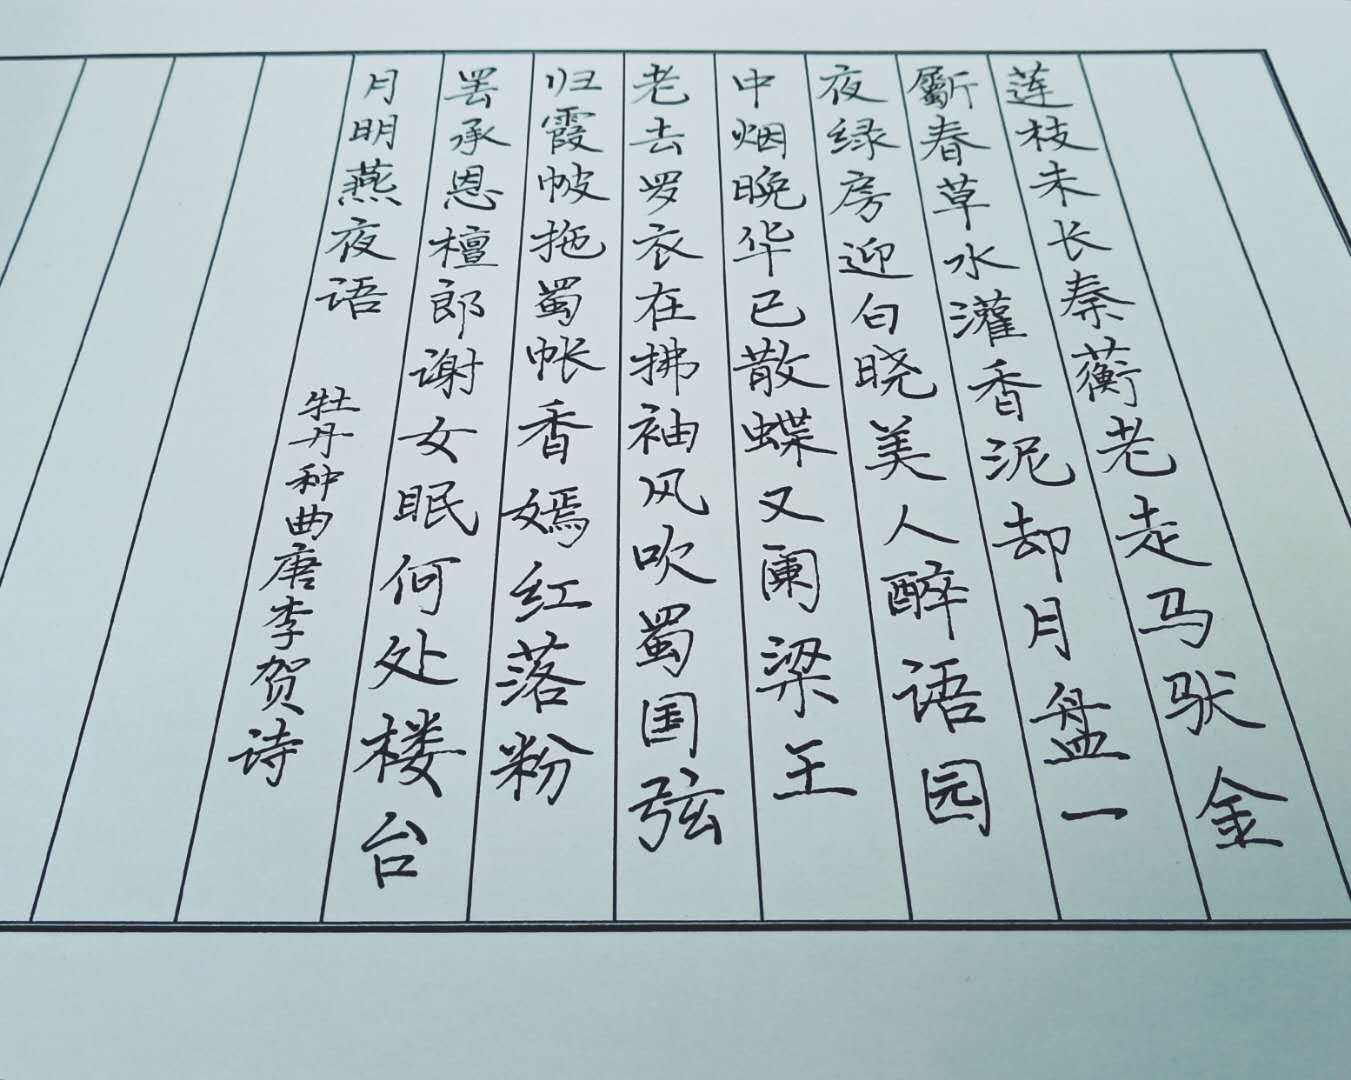 莲枝未长秦蘅老走马驮金
斸春草水灌香泥却月盘一
夜绿房迎白晓美人醉语园
中烟晚华已散蝶又阑梁王
老去罗衣在拂袖风吹蜀国弦
归霞帔拖蜀帐香嫣红落粉
罢承恩檀郎谢女眠何处楼台
月明燕夜语
牡丹种曲唐李贺诗